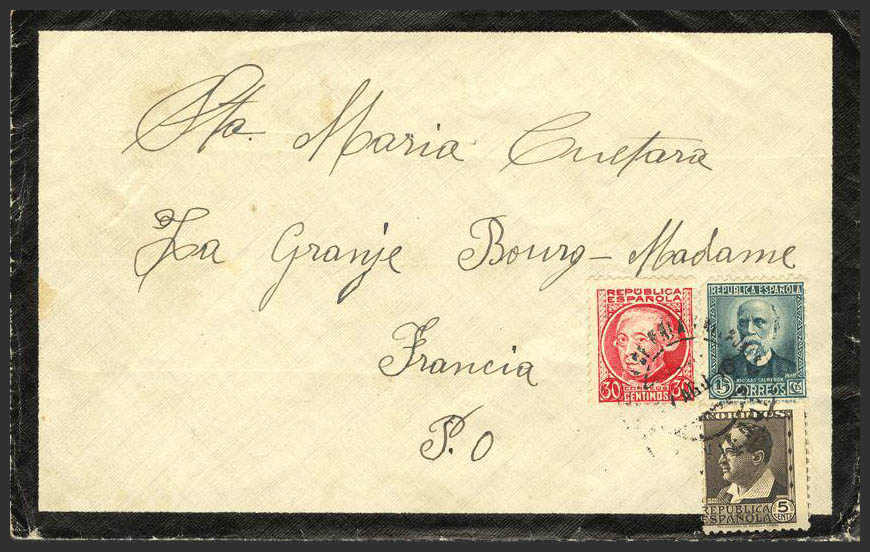 Sta. Maria Cuetara
La Granje Bourg-Madame
Francia
P.O
REPÚBLICA
ESPAÑOLA
30 CORREOS 30
CENTIMOS
REPUBLICA ESPAÑOLA
NICOLAS SALMERÓN
15 CORREOS Cts
CORREOS
REPUBLICA 5
ESPAÑOLA CENTS